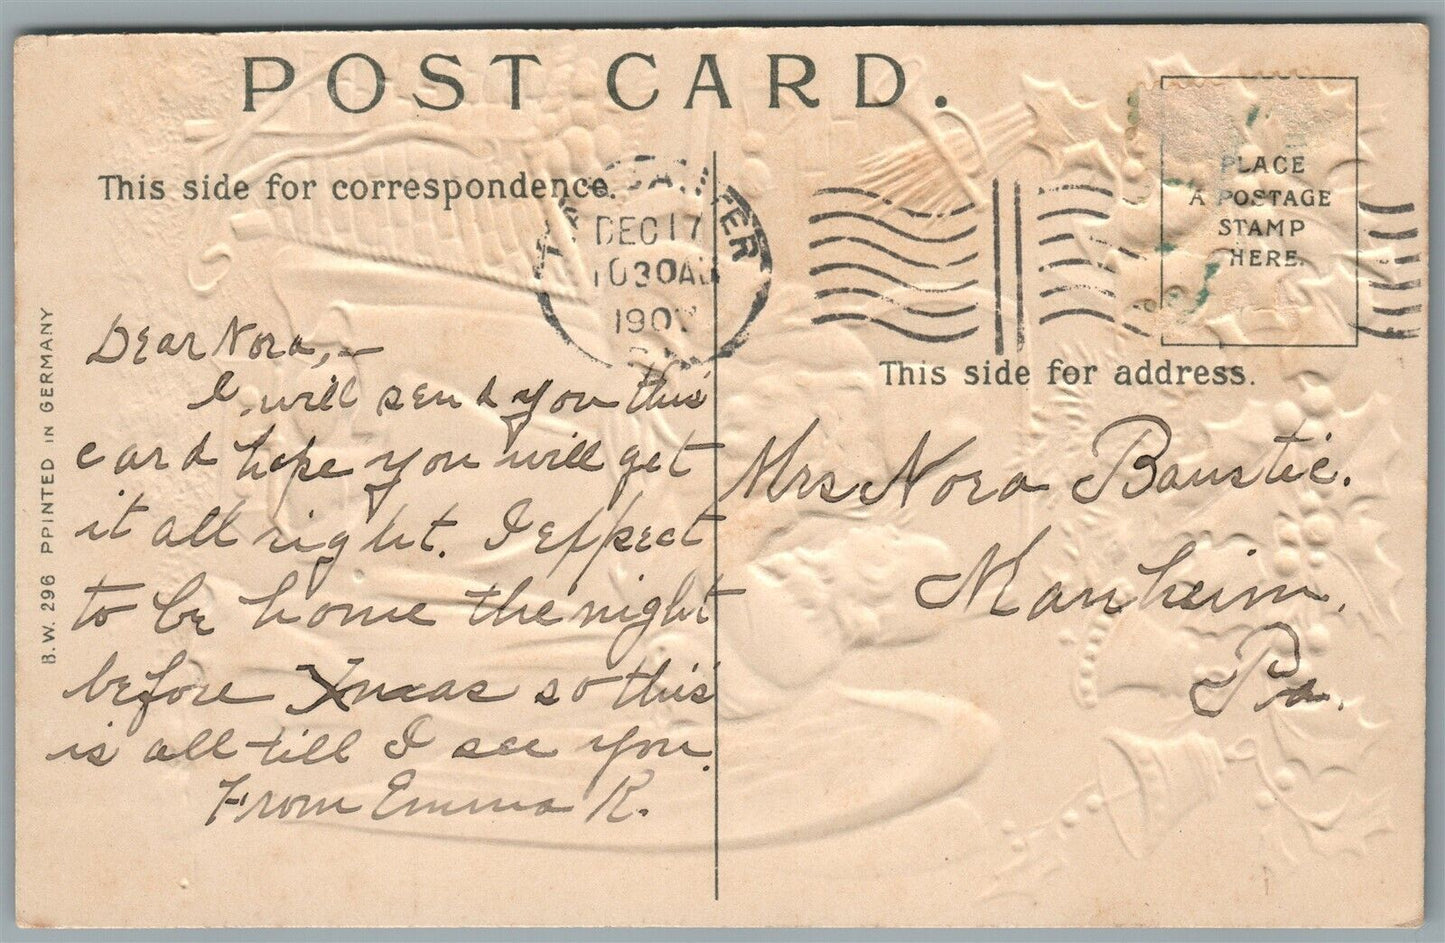 POST CARD.
This side for correspondence.
DEC 17
1030A
190
PLACE
A POSTAGE
STAMP
HERE.
This side for address.
B.W. 296 PPINTED IN GERMANY
Dear Nora,—
I will send you this
card hope you will get
it all right. I expect
to be home the night
before Xmas so this
is all till I see you.
From Emma K.
Mrs Nora Baustic.
Manheim,
Pa.